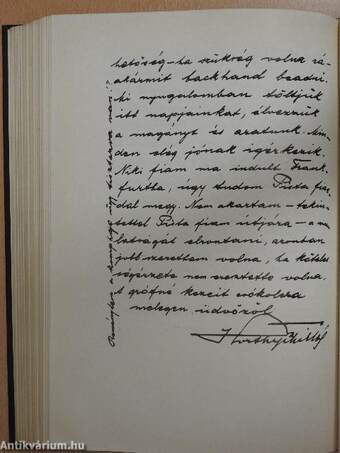 hetőség – ha szükség volna rá –
akármit backhand beadni.
ki nyugalomban töltjük
itt napjainkat, élvezzük
a magányt és aratunk. Min-
den elég jónak igérkezik.
Niki fiam ma indult Frank-
furtba, úgy tudom Pista fia-
dal megy. Nem akartam – tekin-
tettel Pista fiam útjára – a mu-
latságát elrontani, azonban
jobb szerettem volna, ha kötele-
ségérzete nem eresztette volna.
A grófné kezeit csókolva
melegen üdvözöl
Horthy Miklós
Antikvárium.hu